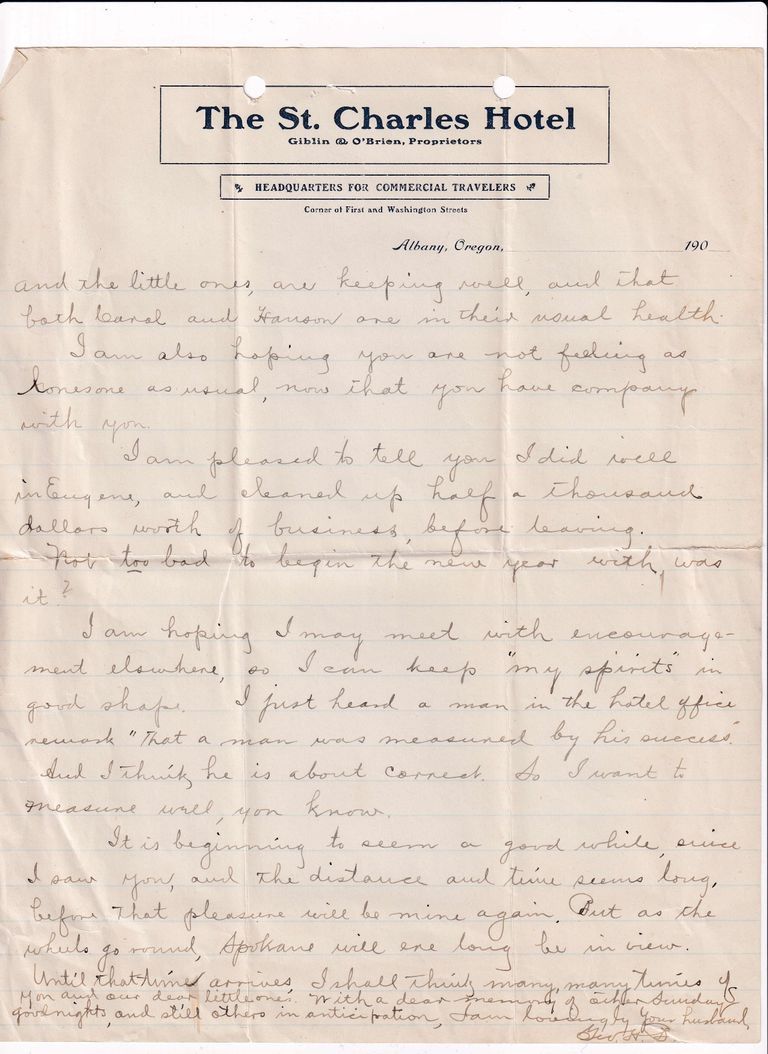 The St. Charles Hotel
Giblin & O'Brien, Proprietors
HEADQUARTERS FOR COMMERCIAL TRAVELERS
Corner of First and Washington Streets
Albany, Oregon, 190
and the little ones, are keeping well, and that
both Carol and Hanson are in their usual health.
I am also hoping you are not feeling as
lonesome as usual, now that you have company
with you.
I am pleased to tell you I did well
in Eugene, and cleaned up half a thousand
dollars worth of business, before leaving.
Not too bad to begin the new year with, was
it?
I am hoping I may meet with encourage-
ment elsewhere, so I can keep "my spirits" in
good shape. I just heard a man in the hotel office
remark "That a man was measured by his success."
And I think he is about correct. So I want to
measure well, you know.
It is beginning to seem a good while, since
I saw you, and the distance and time seems long,
before that pleasure will be mine again. But as the
wheels go round, Spokane will ere long be in view.
Until that time arrives, I shall think many, many times of
you and our dear little ones. With a dear memory of other Sunday
goodnights, and still others in anticipation, I am lovingly your husband,
Geo. H. B.